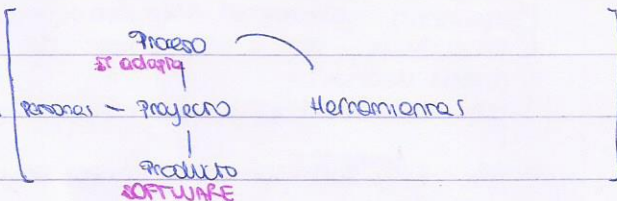 Proceso
se adapta
Personas - Proyecto Herramientas
Producto
SOFTWARE